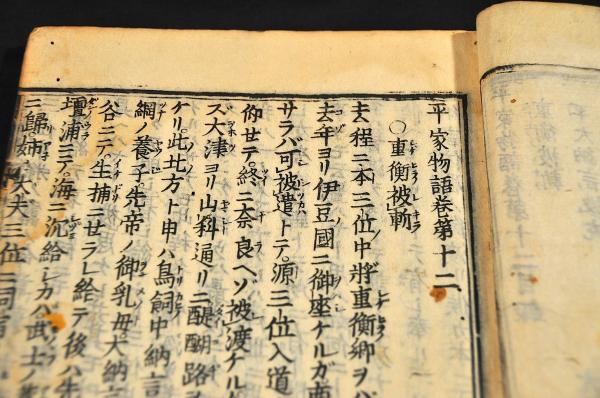 平家物語卷第十二
〇重衡被斬
去程ニ本三位中將重衡卿ヲハ
去年ヨリ伊豆國ニ御座ケルガ
サラバ可被遣トテ。源三位入道
仰セテ。終ニ奈良ヘゾ被渡ケル
ズ大津ヨリ山科通リニ醍醐路
ケリ。此北方ト申ハ鳥飼中納言
綱ノ養子。先帝ノ御乳母大納言
谷ニテ。生捕ニセラレ給テ後ハ先
壇浦ニテ。海ニ沈給シカハ武士ノ
ニ歸。姉ノ大夫三位ニ同